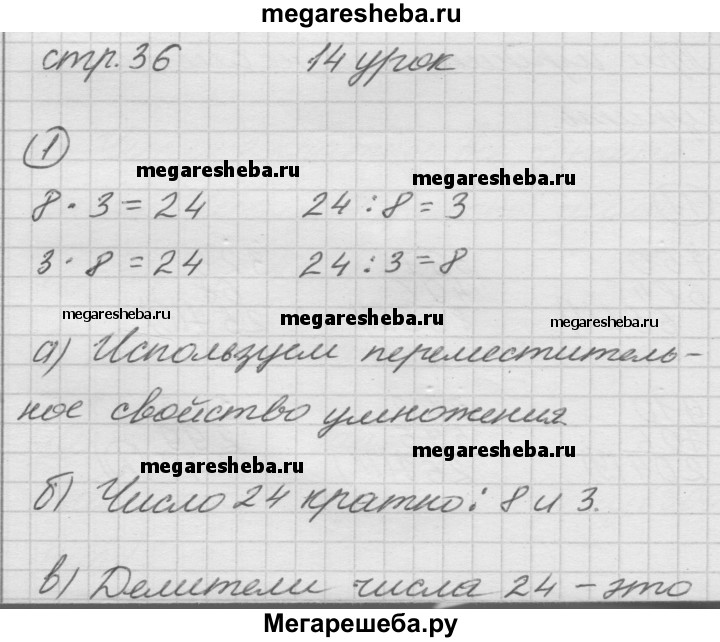 megaresheba.ru
стр. 36 14 урок
1
megaresheba.ru megaresheba.ru
8 · 3 = 24 24 : 8 = 3
3 · 8 = 24 24 : 3 = 8
megaresheba.ru megaresheba.ru megaresheba.ru
а) Используем переместитель-
ное свойство умножения
megaresheba.ru megaresheba.ru
б) Число 24 кратно: 8 и 3.
в) Делители числа 24 – это
Мегарешеба.ру